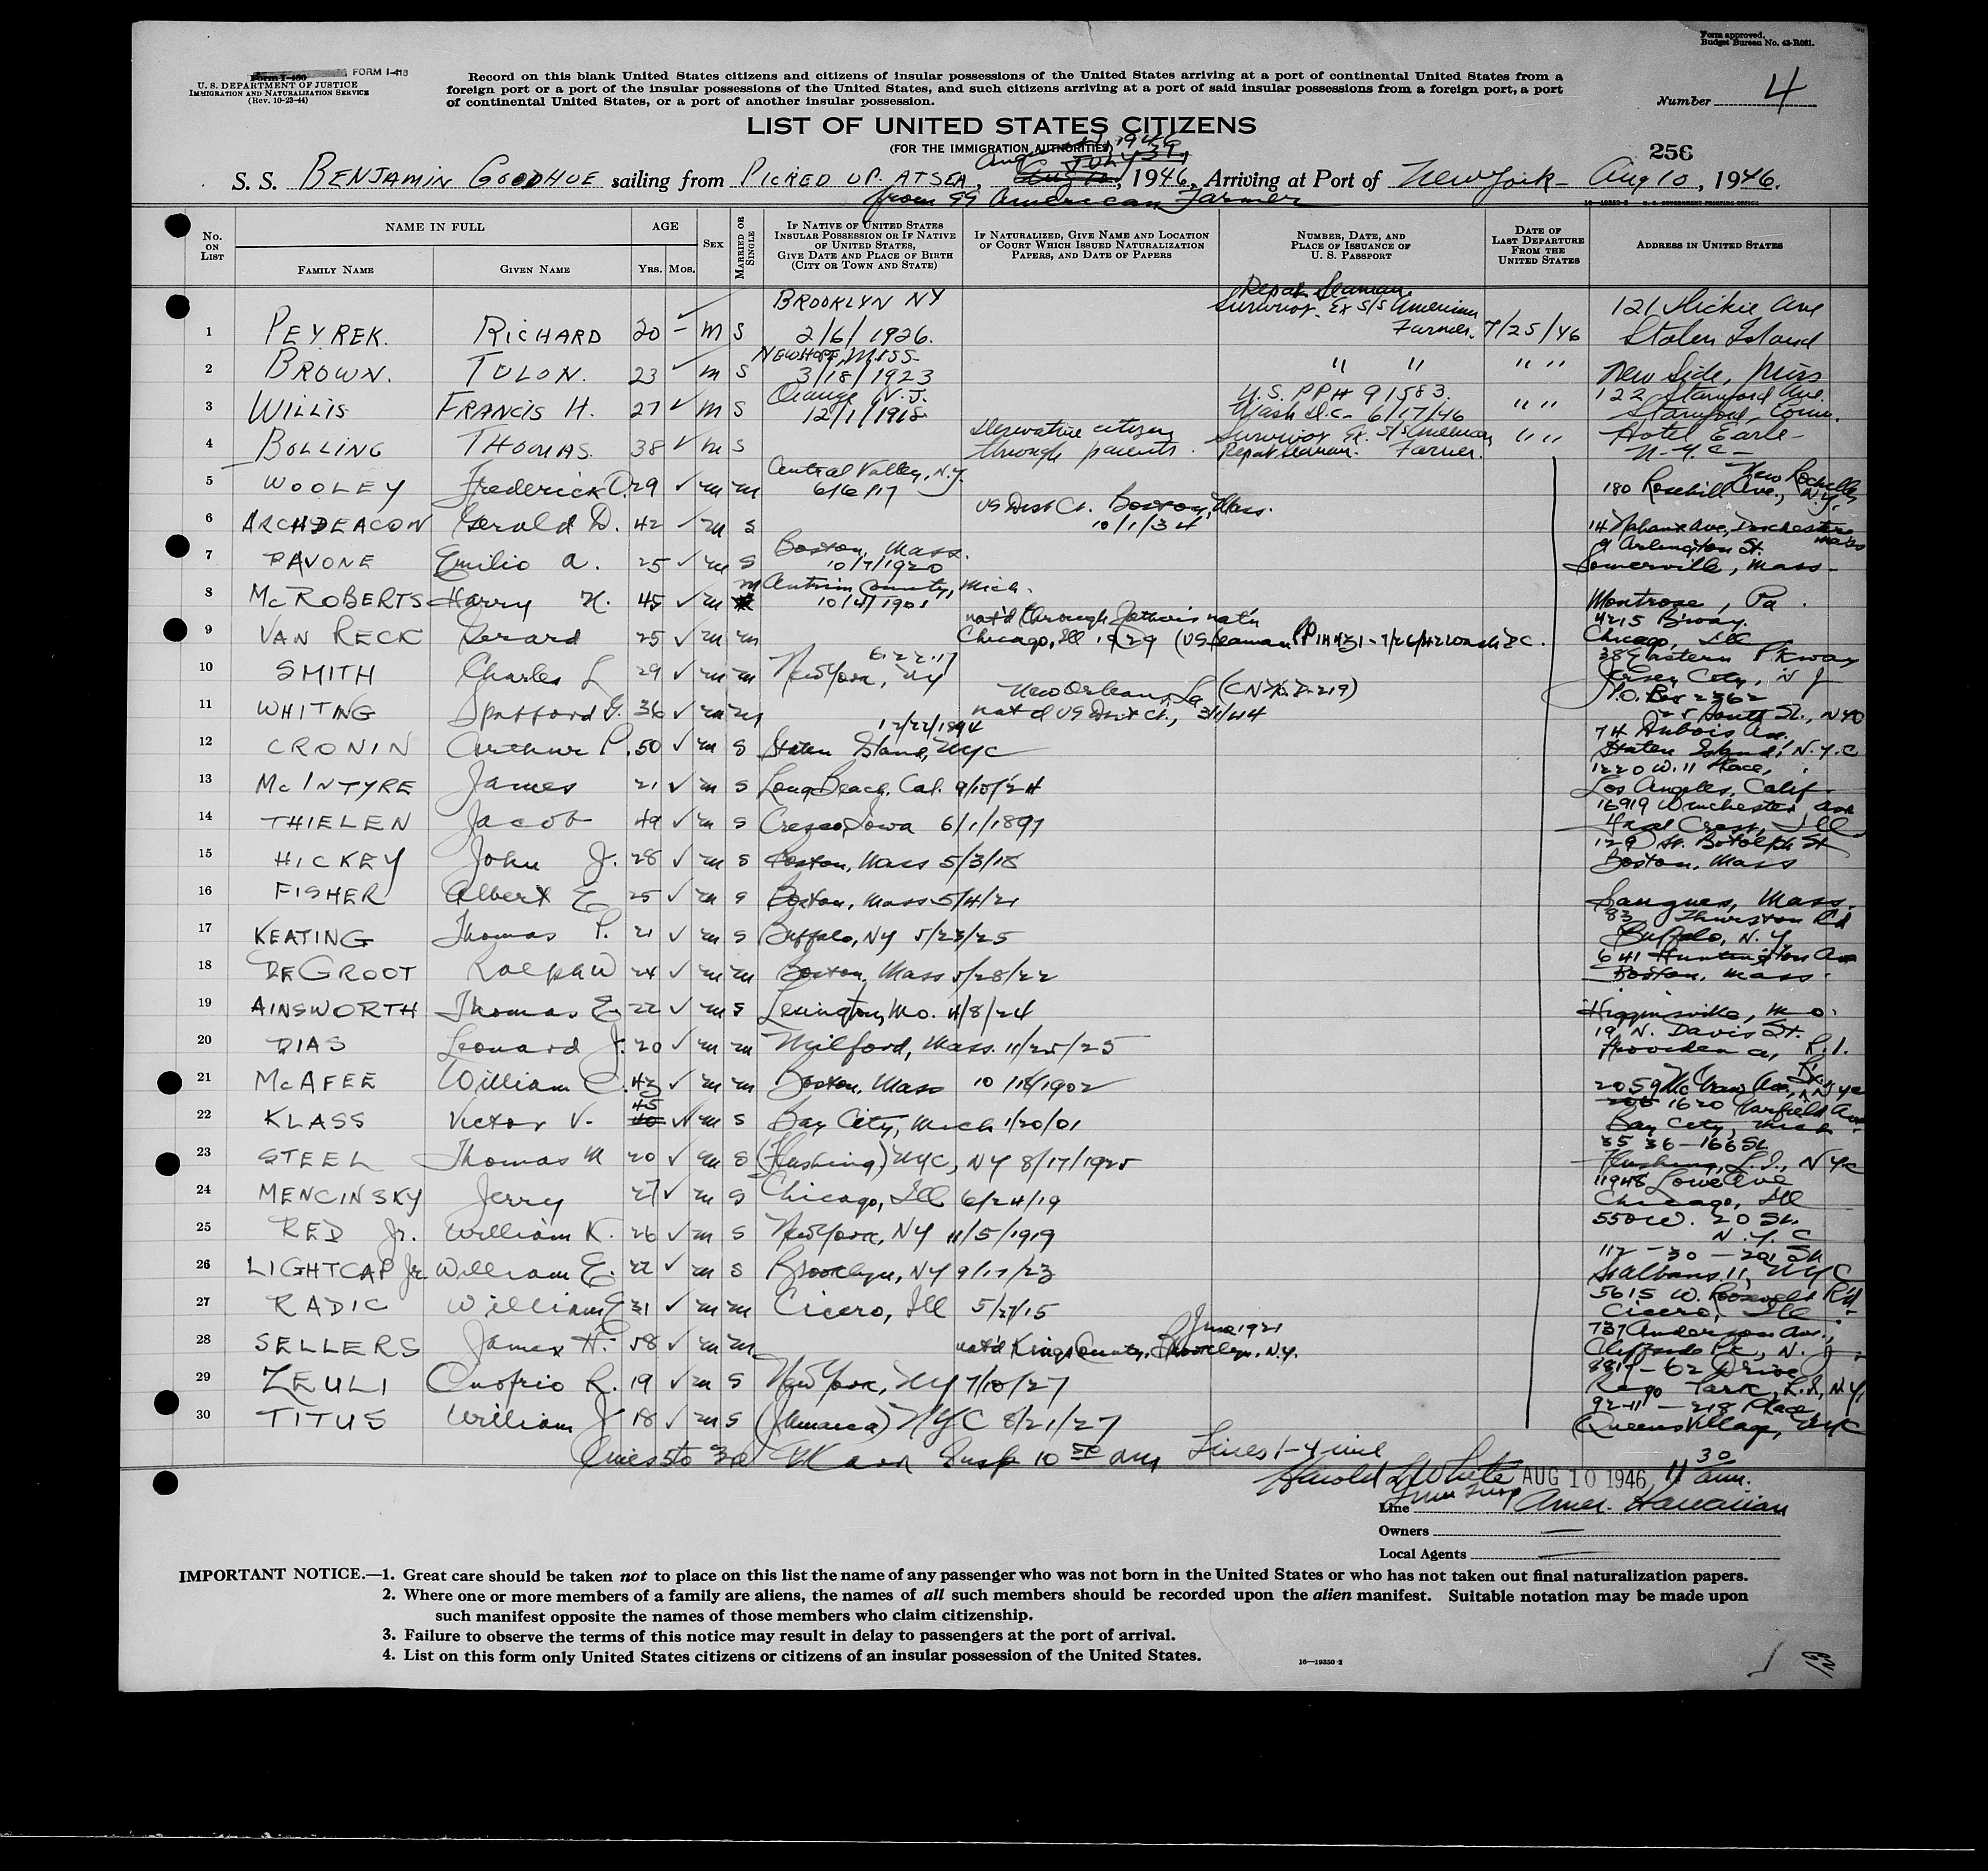 Form approved.
Budget Bureau No. 43-R081.
Form I-460 FORM I-418
U. S. DEPARTMENT OF JUSTICE
IMMIGRATION AND NATURALIZATION SERVICE
(Rev. 10-23-44)
Record on this blank United States citizens and citizens of insular possessions of the United States arriving at a port of continental United States from a
foreign port or a port of the insular possessions of the United States, and such citizens arriving at a port of said insular possessions from a foreign port, a port
of continental United States, or a port of another insular possession.
Number 4
LIST OF UNITED STATES CITIZENS
(FOR THE IMMIGRATION AUTHORITIES)
256
S. S. BENJAMIN GOODHUE sailing from PICKED UP AT SEA, 1946, Arriving at Port of New York - Aug 10, 1946.
from SS American Farmer
16—19350-2 U. S. GOVERNMENT PRINTING OFFICE
No. ON LIST
NAME IN FULL
FAMILY NAME
GIVEN NAME
AGE
YRS. MOS.
SEX
MARRIED OR SINGLE
IF NATIVE OF UNITED STATES INSULAR POSSESSION OR IF NATIVE OF UNITED STATES, GIVE DATE AND PLACE OF BIRTH (CITY OR TOWN AND STATE)
IF NATURALIZED, GIVE NAME AND LOCATION OF COURT WHICH ISSUED NATURALIZATION PAPERS, AND DATE OF PAPERS
NUMBER, DATE, AND PLACE OF ISSUANCE OF U. S. PASSPORT
DATE OF LAST DEPARTURE FROM THE UNITED STATES
ADDRESS IN UNITED STATES
BROOKLYN NY Repat Seaman Survivor Ex S/S American
1 PEYREK. RICHARD 20 – M S 2/6/1926. Farmer. 7/25/46 Staten Island
NEW HOPE, MISS.
2 BROWN. TOLON. 23 ✓ M S 3/18/1923 " " " "
Orange N.J. U.S. PP# 91583. 122 Stamford Ave.
3 WILLIS FRANCIS H. 27 ✓ M S 12/1/1918 Wash D.C- 6/17/46 " " Stamford, Conn.
Derivative citizen Survivor Ex. S/S American Hotel Earle -
4 BOLLING THOMAS. 38 ✓ M S through parents. Repat Seaman. Farmer. " " N.Y.C-
Central Valley, N.Y. New Rochelle
5 WOOLEY Frederick O. 29 ✓ m m 6/6/17 180 Rosehill Ave., N.Y.
US Dist Ct. Boston, Mass.
6 ARCHDEACON Gerald D. 42 ✓ m s 10/1/34
Boston, Mass. 9 Arlington St.
7 PAVONE Emilio A. 25 ✓ m s 10/7/1920 Somerville, Mass.
Antrim County, Mich.
8 McROBERTS Harry H. 45 ✓ m m 10/4/1901 Montrose, Pa.
nat'd through father's nat'n 4215 Bway.
9 VAN RECK Gerard 25 ✓ m m Chicago, Ill 1929 Chicago, Ill
6-22-17 38 Eastern Pkway
10 SMITH Charles L 29 ✓ m m New York, NY Jersey City, N J
New Orleans, La P.O. Box 2362
11 WHITING Spafford G. 36 ✓ m m nat'd US Dist Ct., 3/1/44 25 South St., NYC
12/22/1894 74 Dubois Ave.
12 CRONIN Arthur P. 50 ✓ m s Staten Island, NYC Staten Island, N.Y.C
1220 W. 11 Place,
13 McINTYRE James 21 ✓ m s Long Beach, Cal. 9/10/24 Los Angeles, Calif.
16919 Winchester Ave
14 THIELEN Jacob 49 ✓ m s Cresco, Iowa 6/1/1897 Hazel Crest, Ill
129 St. Botolph St
15 HICKEY John J. 28 ✓ m s Boston, Mass 5/3/18 Boston, Mass
16 FISHER Albert E 25 ✓ m s Boston, Mass 5/4/21 Saugus, Mass.
83 Thurston Rd
17 KEATING Thomas P. 21 ✓ m s Buffalo, NY 5/23/25 Buffalo, N.Y.
641 Huntington Ave
18 DEGROOT Ralph W 24 ✓ m m Boston, Mass 5/28/22 Boston, Mass.
19 AINSWORTH Thomas E. 22 ✓ m s Lexington, Mo. 4/8/24 Higginsville, Mo.
19 N. Davis St.
20 DIAS Leonard J. 20 ✓ m m Milford, Mass. 11/25/25 Providence, R.I.
21 McAFEE William C. 43 ✓ m m Boston, Mass 10/18/1902
45 1620 Garfield Ave
22 KLASS Victor V. 40 ✓ m s Bay City, Mich 1/20/01 Bay City, Mich
35 36 - 166 St
23 STEEL Thomas M 20 ✓ m s (Flushing) NYC, NY 8/17/1925 Flushing, L.I., NYC
11948 Lowe Ave
24 MENCINSKY Jerry 27 ✓ m s Chicago, Ill 6/24/19 Chicago, Ill
550 W. 20 St.
25 RED Jr. William K. 26 ✓ m s New York, NY 11/5/1919 N.Y.C
112 - 30 - 201 St
26 LIGHTCAP Jr William E. 22 ✓ m s Brooklyn, NY 9/17/23 St Albans 11, NYC
5615 W. Roosevelt Rd.
27 RADIC William E 31 ✓ m m Cicero, Ill 5/27/15 Cicero, Ill.
June 1921 737 Anderson Ave.,
28 SELLERS James H. 58 ✓ m m nat'd Kings County, Brooklyn, N.Y. Cliffside Pk., N. J.
62 Drive
29 ZEULI Onofrio R. 19 ✓ m s New York, NY 7/10/27 Rego Park, L.I, N.Y.
92-11 - 218 Place
30 TITUS William J 18 ✓ m s (Jamaica) NYC 8/21/27 Queens Village, NYC
Lines 5 to 30 Insp 10 am Lines 1-4 incl
Harold L White AUG 10 1946 11 30 am.
Imm Insp
Line Amer. Hawaiian
Owners —
Local Agents —
IMPORTANT NOTICE.—1. Great care should be taken not to place on this list the name of any passenger who was not born in the United States or who has not taken out final naturalization papers.
2. Where one or more members of a family are aliens, the names of all such members should be recorded upon the alien manifest. Suitable notation may be made upon
such manifest opposite the names of those members who claim citizenship.
3. Failure to observe the terms of this notice may result in delay to passengers at the port of arrival.
4. List on this form only United States citizens or citizens of an insular possession of the United States.
16—19350-2